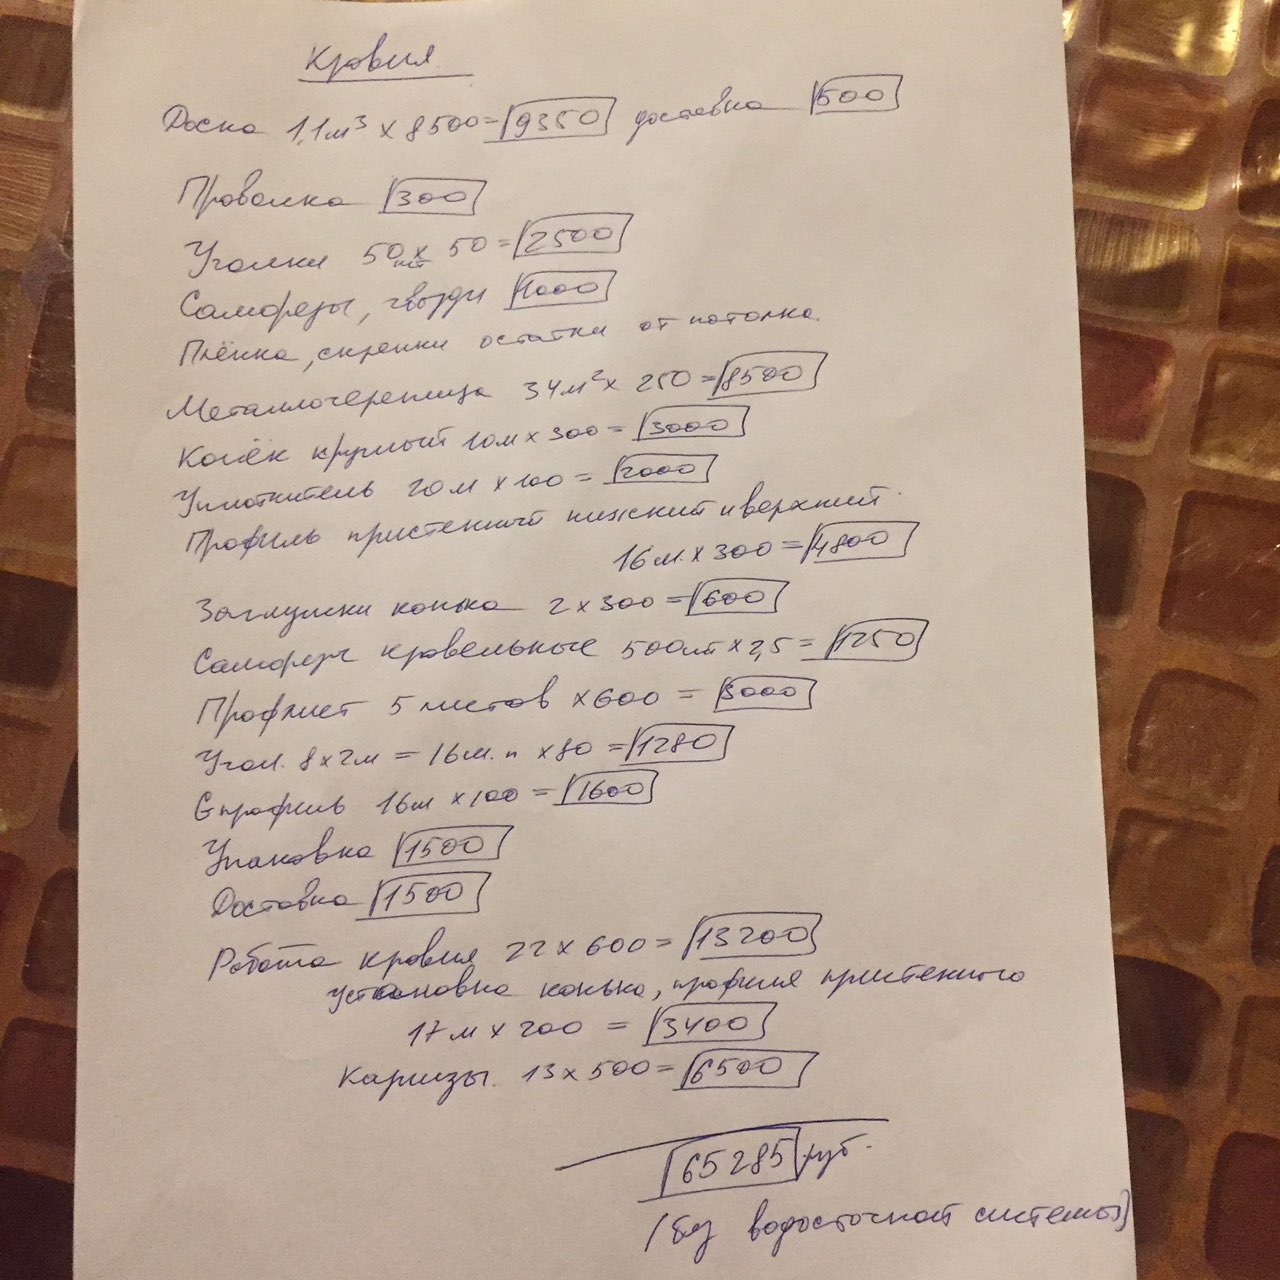 Кровля
Доска 1,1м³ х 8500=9350 доставка 500
Проволка 300
Уголки 50шт х 50=2500
Саморезы, гвозди 1000
Плёнка, скрепки остатки от потолка.
Металлочерепица 34м² х 250=8500
Конёк круглый 10м х 300=3000
Уплотнитель 20м х 100=2000
Профиль пристенный нижний и верхний
16м. х 300=4800
Заглушки конька 2 х 300=600
Саморезы кровельные 500шт х 2,5=1250
Профлист 5 листов х 600=3000
Угол. 8х2м=16м.п х 80=1280
G профиль 16м х 100=1600
Упаковка 1500
Доставка 1500
Работа кровля 22 х 600=13200
установка конька, профиля пристенного
17м х 200=3400
Карнизы. 13 х 500=6500
65285 руб.
(без водосточной системы)